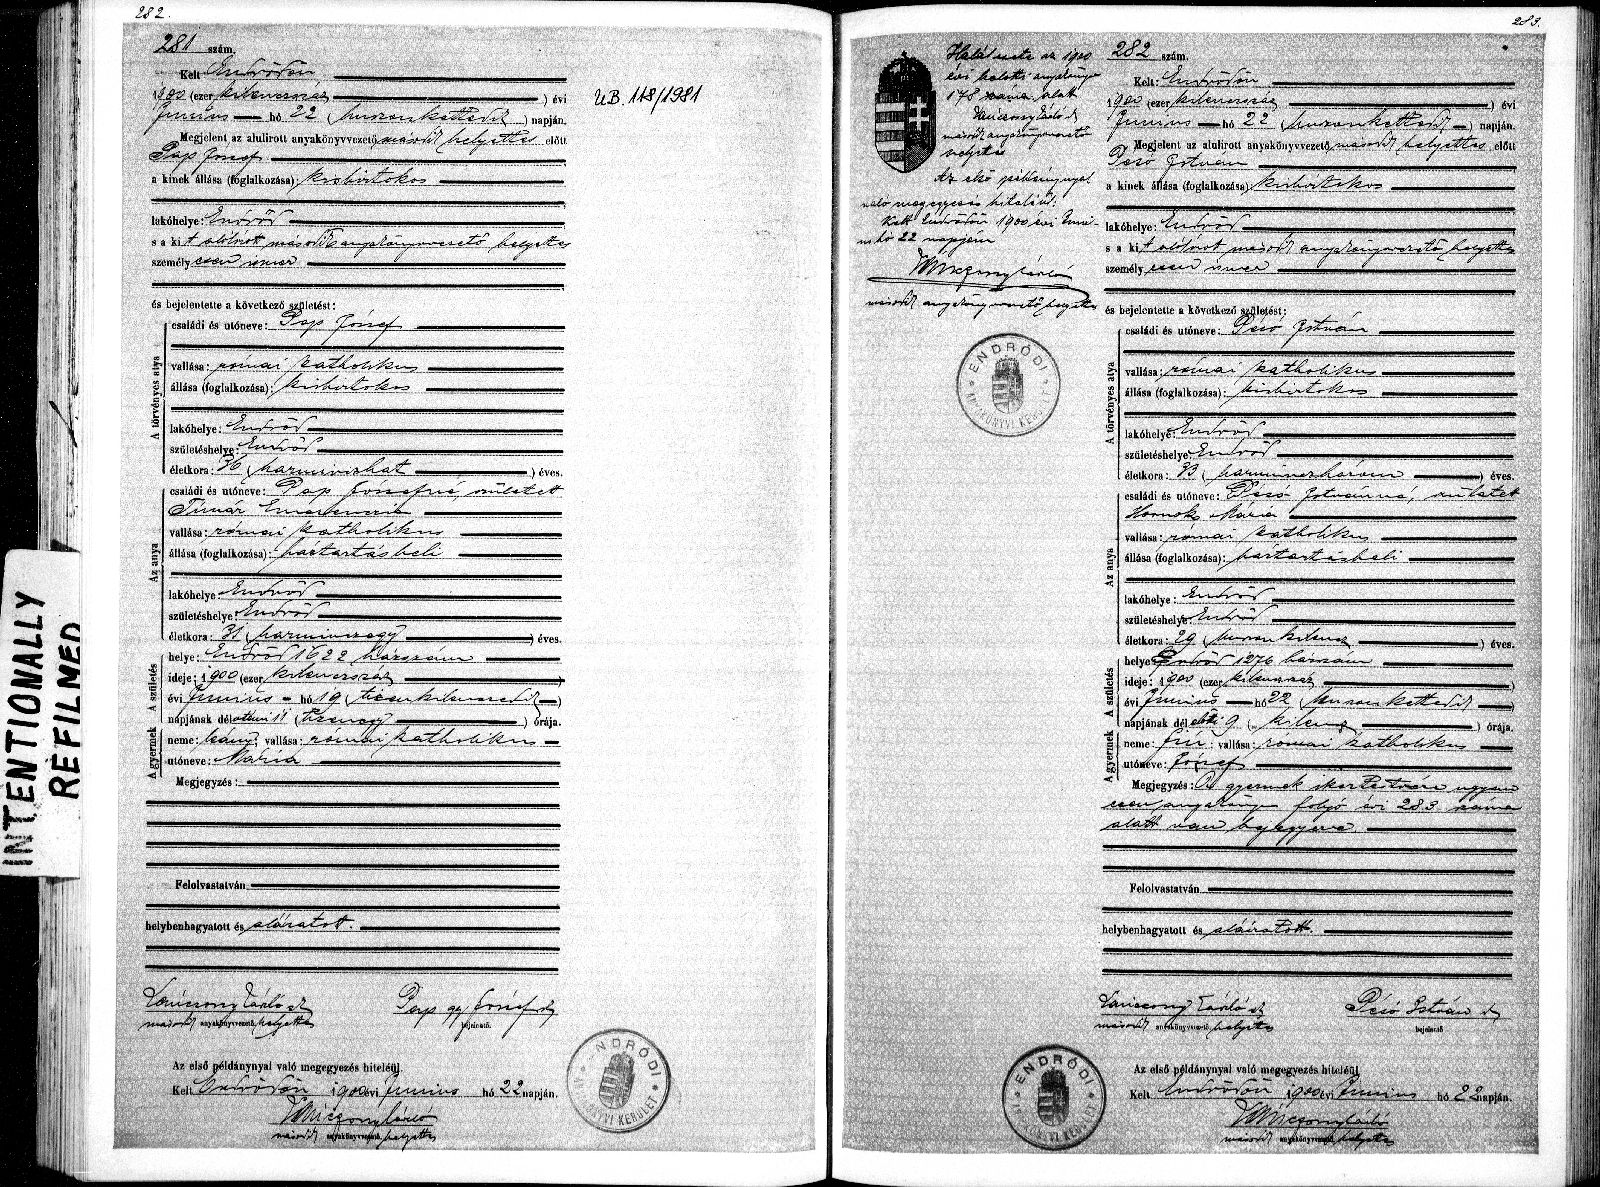 282.
281 szám.
Kelt Endrődön
1900 (ezer kilenczszáz) évi
Junius hó 22 (huszonkettedik) napján.
Megjelent az alulirott anyakönyvvezető második helyettes előtt
Pap József
a kinek állása (foglalkozása): kisbirtokos
lakóhelye: Endrőd
s a kit alólirott második anyakönyvvezető helyettes
személyesen ismer
és bejelentette a következő születést:
A törvényes atya
családi és utóneve: Pap József
vallása: római katholikus
állása (foglalkozása): kisbirtokos
lakóhelye: Endrőd
születéshelye: Endrőd
életkora: 36 (harminczhat) éves.
Az anya
családi és utóneve: Pap Józsefné született
Timár
vallása: római katholikus
állása (foglalkozása): háztartásbeli
lakóhelye: Endrőd
születéshelye: Endrőd
életkora: 31 (harminczegy) éves.
A születés
helye: Endrőd 1622 házszám
ideje: 1900 (ezer kilenczszáz
évi Junius hó 19 (tizenkilenczedik)
napjának délutáni 11 (tizenegy) órája.
A gyermek
neme: leány; vallása: római katholikus
utóneve: Mária
Megjegyzés:
Felolvastatván
helybenhagyatott és aláiratott.
második anyakönyvvezető helyettes
Pap József
bejelentő.
Az első példánynyal való megegyezés hiteléül.
Kelt Endrődön 1900 évi Junius hó 22 napján.
második anyakönyvvezető helyettes
ENDRŐDI
ANYAKÖNYVI KERÜLET
UB. 118/1981
INTENTIONALLY
REFILMED
283.
az 1900
évi halotti anyakönyv
178 száma alatt
második anyakönyvvezető
helyettes
Az első példánynyal
való megegyezés hiteléül.
Kelt Endrődön 1900 évi Juni-
us hó 22 napján
második anyakönyvvezető helyettes
ENDRŐDI
ANYAKÖNYVI KERÜLET
282 szám.
Kelt: Endrődön
1900 (ezer kilenczszáz) évi
Junius hó 22 (huszonkettedik) napján.
Megjelent az alulirott anyakönyvvezető második helyettes előtt
István
a kinek állása (foglalkozása) kisbirtokos
lakóhelye: Endrőd
s a kit alólirott második anyakönyvvezető helyettes
személyesen ismer
és bejelentette a következő születést:
A törvényes atya
családi és utóneve: István
vallása: római katholikus
állása (foglalkozása): kisbirtokos
lakóhelye: Endrőd
születéshelye Endrőd
életkora: 33 (harminczhárom) éves.
Az anya
családi és utóneve: Istvánné, született
Hornok Mária
vallása: római katholikus
állása (foglalkozása): háztartásbeli
lakóhelye: Endrőd
születéshelye: Endrőd
életkora: 29 (huszonkilencz) éves.
A születés
helye: Endrőd 1276 házszám
ideje: 1900 (ezer kilenczszáz)
évi Junius hó 22 (huszonkettedik)
napjának délelőtti 9 (kilencz) órája.
A gyermek
neme: fiú; vallása: római katholikus
utóneve: József
Megjegyzés: A gyermek ikertestvére ugyan
ezen anyakönyv folyó évi 283 száma
alatt van bejegyezve.
Felolvastatván
helybenhagyatott és aláiratott.
második anyakönyvvezető helyettes
István
bejelentő
Az első példánynyal való megegyezés hiteléül.
Kelt Endrődön 1900 évi Junius hó 22 napján.
második anyakönyvvezető helyettes
ENDRŐDI
ANYAKÖNYVI KERÜLET